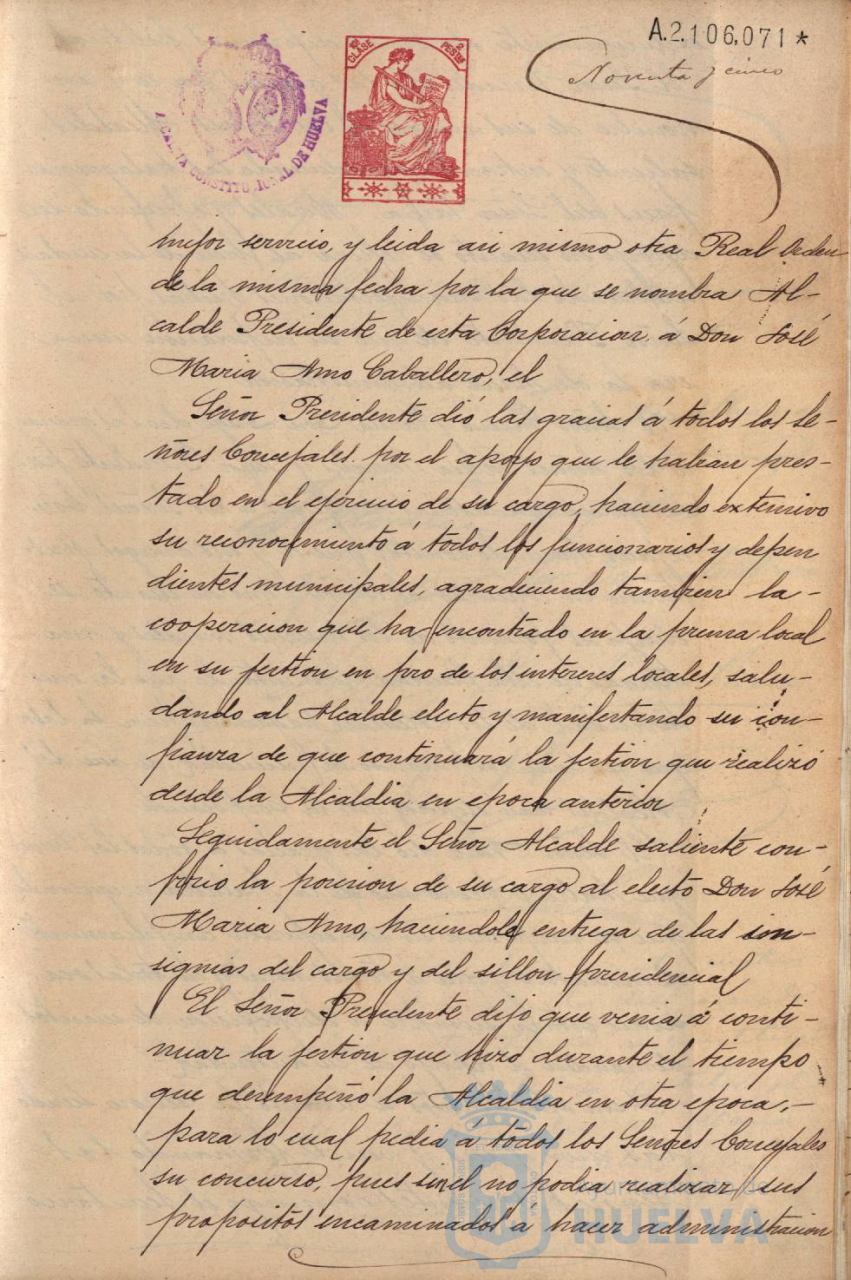 A.2.106,071*
Noventa y cinco
10ª CLASE
2 PESTAS
ALCALDIA CONSTITUCIONAL DE HUELVA
mejor servicio, y leida asi mismo otra Real Orden
de la misma fecha por la que se nombra Al-
calde Presidente de esta Corporacion á Don José
Maria Amo Caballero, el
Señor Presidente dió las gracias á todos los Se-
ñores Concejales por el apoyo que le habian pres-
tado en el ejercicio de su cargo, haciendo extensivo
su reconocimiento á todos los funcionarios y depen
dientes municipales, agradeciendo tambien la-
cooperacion que ha encontrado en la prensa local
en su gestion en pro de los interes locales, salu-
dando al Alcalde electo y manifestando su con-
fianza de que continuará la gestion que realizó
desde la Alcaldia en epoca anterior
Seguidamente el Señor Alcalde saliente con-
firio la posesion de su cargo al electo Don José
Maria Amo, haciendole entrega de las in-
signias del cargo y del sillon presidencial
El Señor Presidente dijo que venia á conti-
nuar la gestion que hizo durante el tiempo
que desempeñó la Alcaldia en otra epoca,-
para lo cual pedia á todos los Señores Concejales
su concurso, pues sin el no podia realizar sus
propositos encaminados á hacer administracion
HUELVA